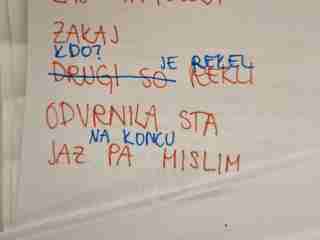 ZAKAJ
KDO? JE REKEL
DRUGI SO REKLI
ODVRNILA STA
NA KONCU
JAZ PA MISLIM